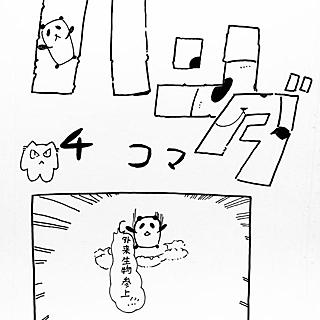 パンダ
4コマ
外来生物参上